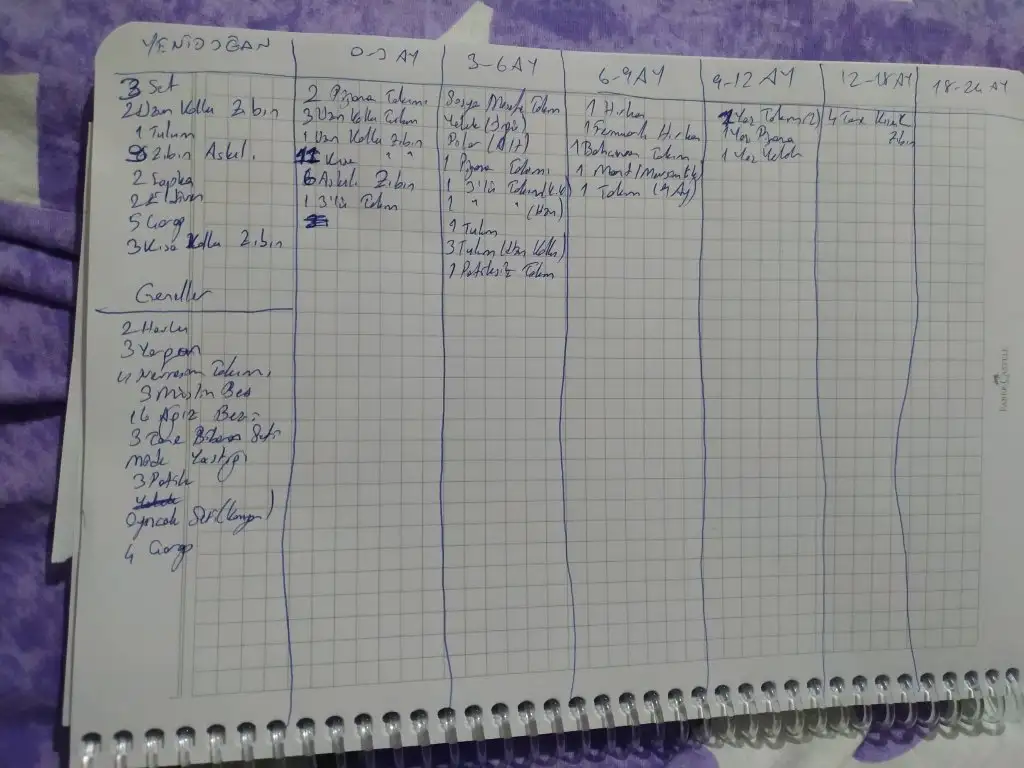 YENİDOĞAN
3 Set
2 Uzun Kollu Zıbın
1 Tulum
Zıbın Askılı.
2 Şapka
2 Eldiven
5 Çorap
3 Kısa Kollu Zıbın
Geneller
2 Havlu
3 Yorgan
4 Nevresim Takımı
3 Müslin Bez
16 Ağız Bezi
3 Tane Biberon Seti
Yastığı
3 Patik
Oyuncak Seti (Kanguru)
4 Çorap
0-3 AY
2 Pijama Takımı
3 Uzun Kollu Takım
1 Uzun Kollu Zıbın
11 Kısa " "
6 Askılı Zıbın
1 3'lü Takım
3-6 AY
Takım
Yelek
1 Pijama Takımı
1 3'lü Takım (K.K)
1 " " (Uzun)
Tulum
3 Tulum (Uzun Kollu)
1 Patiksiz Takım
6-9 AY
1 Hırka
1 Fermuarlı Hırka
1 Takım
1 Mont
1 Takım (9 Ay)
9-12 AY
Yaz Takımı (2)
1 Yaz Pijama
1 Yaz Yelek
12-18 AY
4 Tane Kısa K
Zıbın
18-24 AY